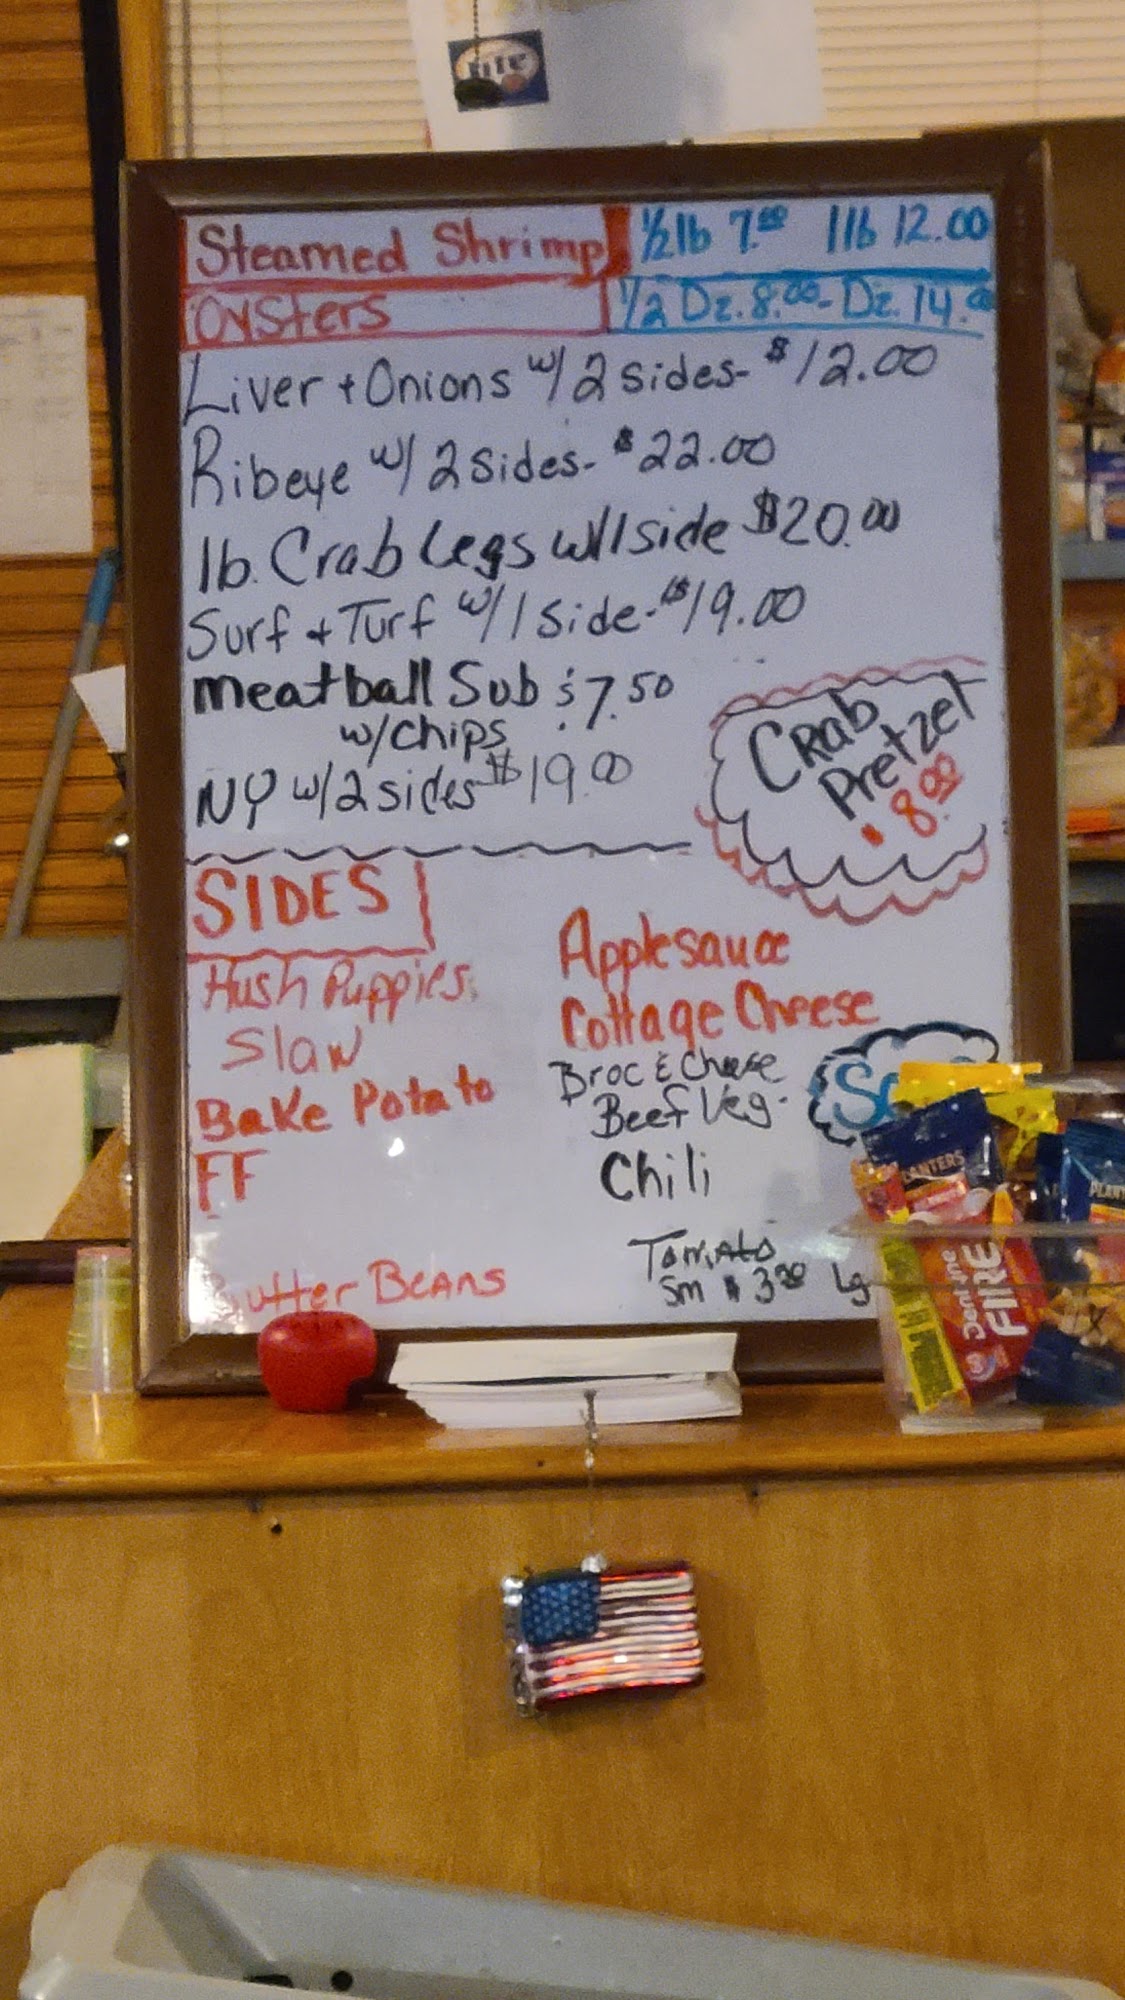 Lite
Steamed Shrimp 1/2 lb 7.00 1 lb 12.00
Oysters 1/2 Dz. 8.00 - Dz. 14.00
Liver + Onions w/ 2 sides - $12.00
Ribeye w/ 2 Sides - $22.00
1b. Crab Legs w/1 side $20.00
Surf + Turf w/ 1 Side - $19.00
meatball Sub $7.50
w/chips
NY w/2 sides $19.00
Crab
Pretzel
$8.00
SIDES
Hush Puppies
Slaw
Bake Potato
FF
Butter Beans
Applesauce
Cottage Cheese
Broc & Cheese
Beef Veg.
Chili
Tomato
Sm $3.00 Lg
PLANTERS
Dentyne
FIRE